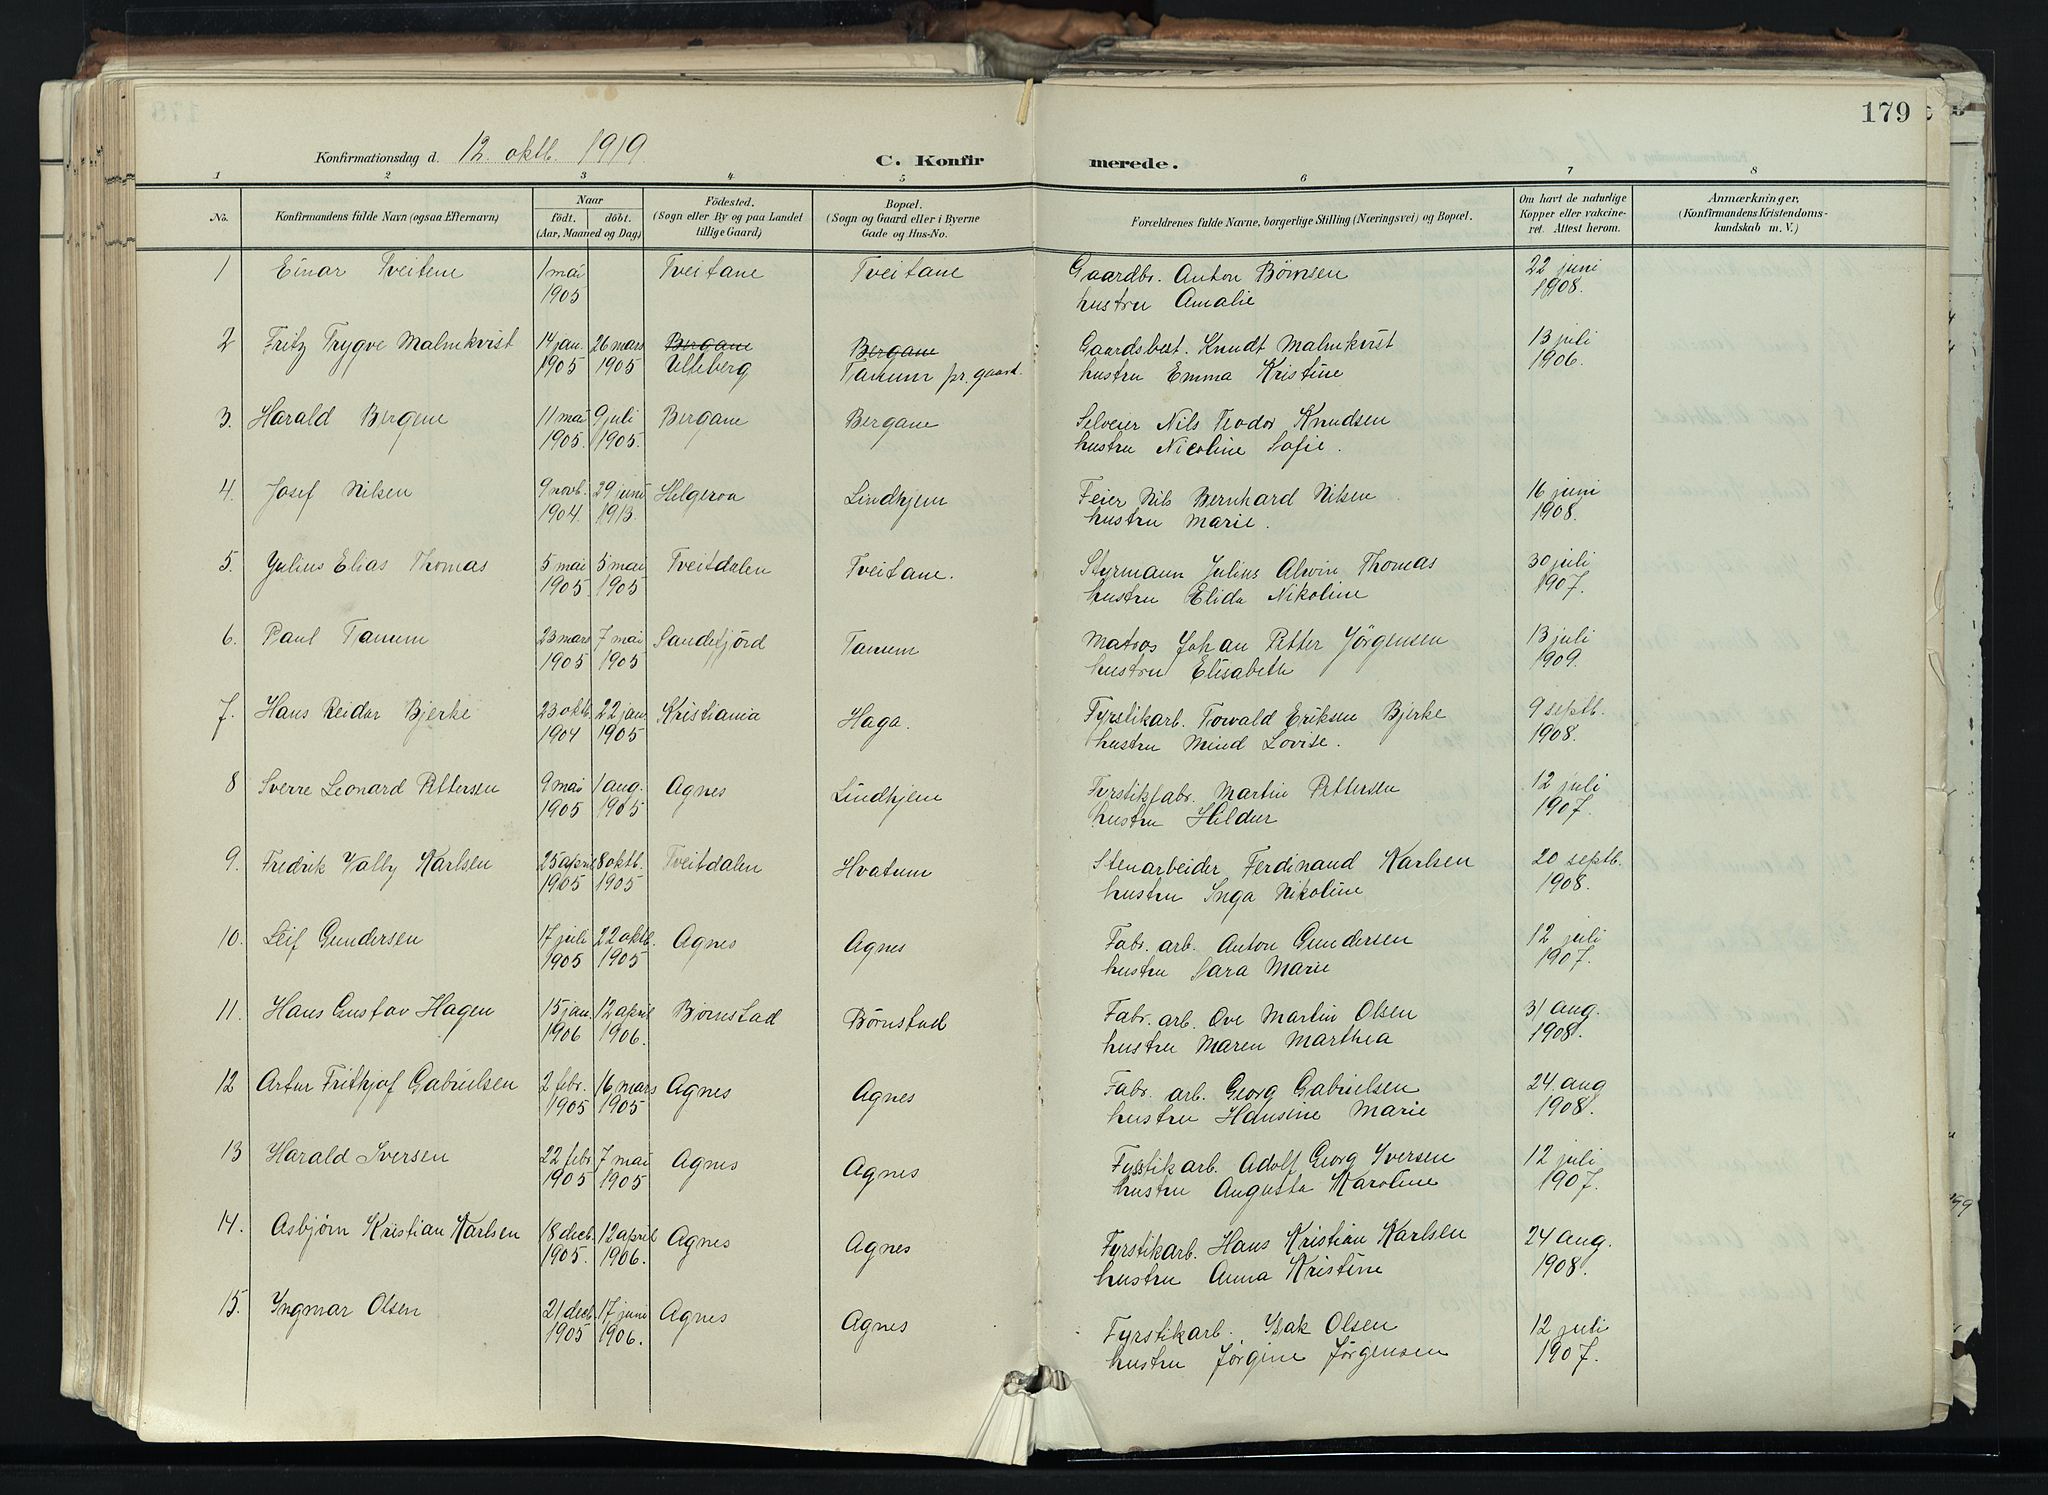 179
Konfirmationsdag d. 12. oktb. 1919. C. Konfirmerede.
1 2 3 4 5 6 7 8
No. Konfirmandens fulde Navn (ogsaa Efternavn) Naar födt. döbt. (Aar, Maaned og Dag) Födested. (Sogn eller By og paa Landet tillige Gaard) Bopæl. (Sogn og Gaard eller i Byerne Gade og Hus-No. Forældrenes fulde Navne, borgerlige Stilling (Næringsvei) og Bopæl. Om havt de naturlige Kopper eller vakcineret. Attest herom. Anmærkninger, (Konfirmandens Kristendomskundskab m. V.)
1 Einar Tveitene 1 mai Tveitane Tveitane Gaardbr. Anton 22 juni
1905 hustru Amalie 1908.
2 Fritz Trygve Malmkvist 14 jan. 26 mars Bergane Bergane Gaardsbest. Knudt Malmkvist 13 juli
1905 1905 Ulleberg Tanum pr. gaard. hustru Emma Kristine 1906.
3. Harald Bergene 11 mai 9 juli Bergane Bergane Selveier Nils Teodor Knudsen
1905. 1905. hustru Nicoline Sofie.
4. Josef Nilsen 9 novb. 29 juni Helgeroa Lindhjem Feier Nils Bernhard Nilsen 16 juni
1904. 1913. hustru Marie. 1908.
5. Julius Elias Thomas 5 mai 5 mai Tveitdalen Tveitane. Styrmann Julius Alwin Thomas 30 juli
1905. 1905 hustru Elida Nikoline 1907.
6. Paul Tanum 23 mars 7 mai Sandefjörd Tanum Matros Johan Petter Jörgensen 13 juli
1905 1905 hustru Elisabeth 1909.
7. Hans Reidar Bjerke 23 oktb. 22 jan. Kristiania Haga. Fyrstikarb. Torvald Eriksen Bjerke 9 septb.
1904 1905 hustru Lovise. 1908.
8 Sverre Leonard Pettersen 9 mai 1 aug. Agnes Lindhjem Fyrstikfabr. Martin Pettersen 12 juli
1905 1905 hustru Hildur 1907.
9. Fredrik Valby Karlsen 25 april 8 oktb. Tveitdalen Hvatum Stenarbeider Ferdinand Karlsen 20 septb.
1905 1905 hustru Inga Nikoline 1908.
10. Leif Gundersen 17 juli 22 oktb. Agnes Agnes Fabr. arb. Anton Gundersen 12 juli
1905 1905 hustru Sara Marie 1907.
11. Hans Gustav Hagen 15 jan. 12 april Bjørnstad Børnstad Fabr. arb. Ove Martin Olsen 31 aug.
1906 1906. hustru Maren Marthea 1908.
12 Artur Frithjof Gabrielsen 2 febr. 16 mars Agnes Agnes Fabr. arb. Georg Gabrielsen 24. aug
1905 1905 hustru Hansine Marie 1908.
13 Harald Iversen 22 febr. 7 mai Agnes Agnes Fyrstikarb. Adolf Georg Iversen 12 juli
1905 1905 hustru Augusta Karoline 1907.
14. Asbjørn Kristian Karlsen 18 decb. 12 april Agnes Agnes Fyrstikarb. Hans Kristian Karlsen 24 aug.
1905. 1906. hustru Anna Kristine 1908.
15. Yngmar Olsen 21 decb. 17 juni Agnes Agnes Fyrstikarb. Isak Olsen 12 juli
1905 1906. hustru Jørgine Jørgensen 1907.